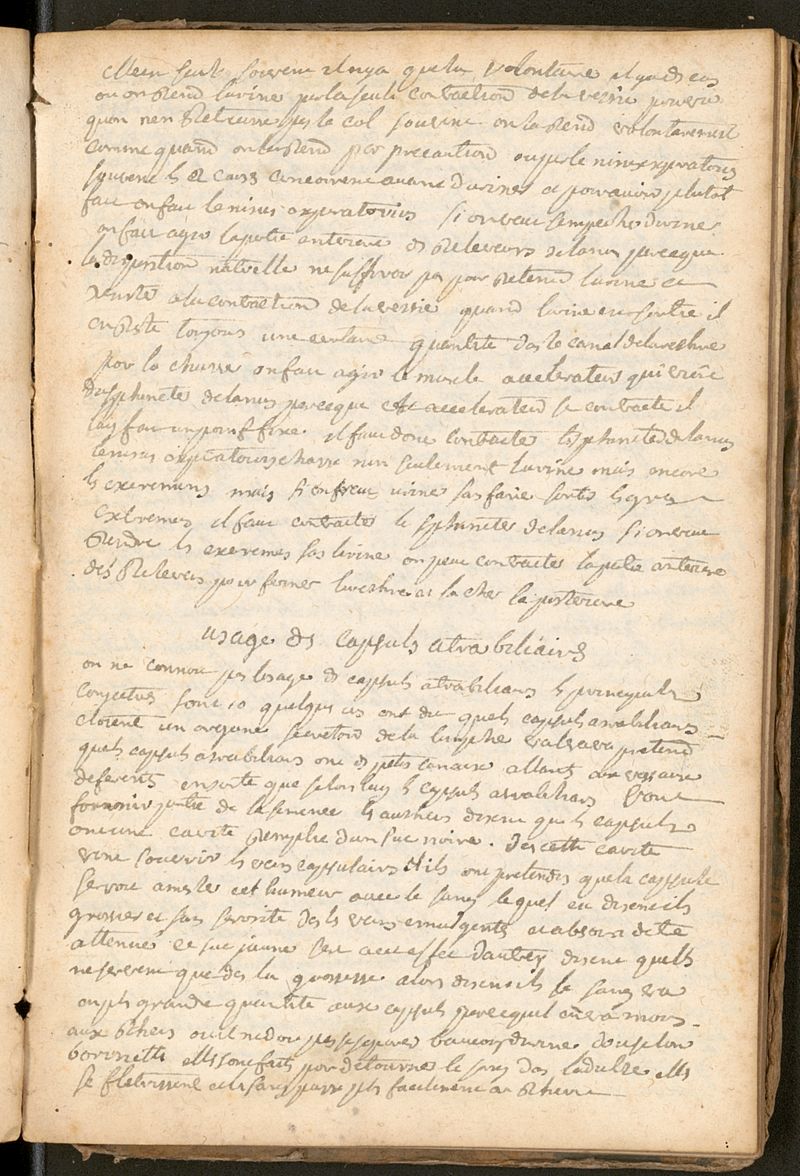 souvent il nya que la volontaire il y a des cas
ou on Rend lurine par la seule contraction de la vessie pourvu
quon nen Retienne pas le col souvent on la Rend volontairement
comme quand on la Rend par precaution ou par le nisus expiratorius
souvent les 2 causes concourent avant duriner et pour avoir plutot
fait on fait le nisus expiratorius si on veut sempecher duriner
on fait agir la partie anterieure des Releveurs de lanus parceque
la disposition naturelle ne suffiroit pas pour Retenir lurine et
Resister a la contraction de la vessie quand lurine est sortie il
en Reste toujours une certaine quantite dans le canal de lurethre
pour la chasser on fait agir le muscle accelerateur qui
du sphincter de lanus parceque cet accelerateur se contracte il
luy faut un point fixe il faut donc contracter le sphincter de lanus
le nisus expiratorius chasse non seulement lurine mais encore
les excremens mais si on veut uriner sans faire sortir les gros
extremens il faut contracter le sphincter de lanus si on veut
Rendre les excremens sans lurine on peut contracter la partie anterieure
des Releveurs pour fermer lurethre et lacher la posterieure
usage des capsules atrabiliaires
on ne connoit pas lusage des capsules atrabiliaires les principales
conjectures sont 10 quelques uns ont dit que les capsules atrabiliaires
etoient un organe secretoire de la limphe valsava pretend
que les capsules atrabiliaires ont des petits canaux allants aux vesseaux
deferents ensorte que selon luy les capsules atrabiliaires vont
fournir partie de la semence les autheurs disent que les capsules
ont une cavite Remplie dun suc noire. dans cette cavite
vont souvrir les veines capsulaires ils ont pretendus que la capsule
servoit a mesler cet humeur avec le sang lequel est disent ils
grossier et sans serosite dans les veines emulgentes et
attenue ce suc jaune dautres disent quels
ne servent que dans la grossesse alors disent ils le sang va
en plus grande quantite aux capsules parcequil en va moins
aux Reins ou il ne doit pas se separer beaucoup durine
elles sont faites pour detourner le sang dans ladulte elles
se fletrissent et le sang passe plus facilement au Rein